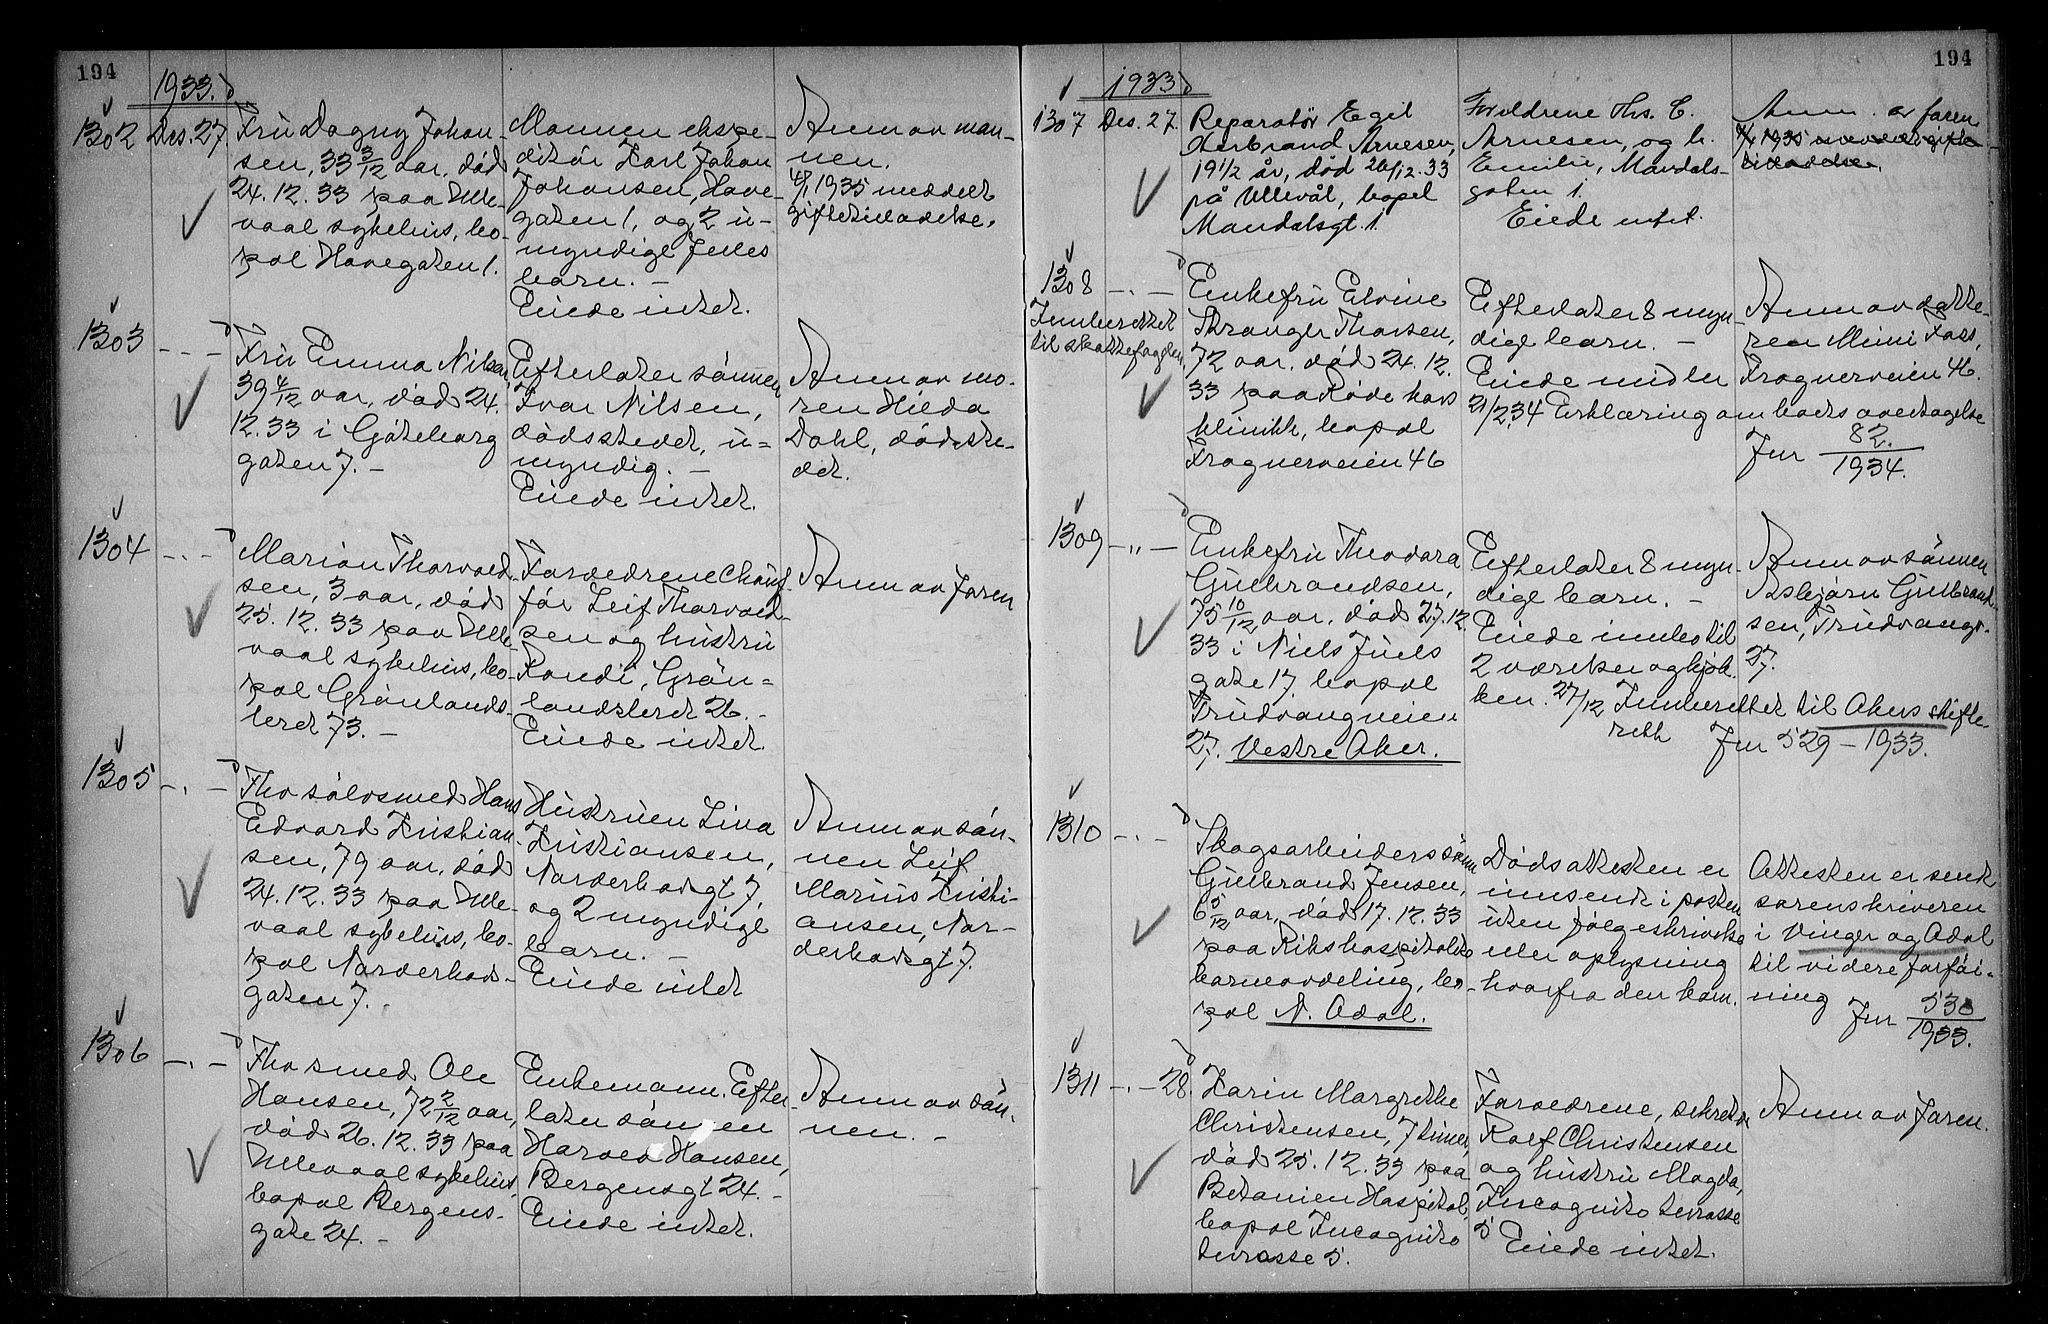 194
1933.
1302 Des. 27.
Fru Dagny Johan-
sen, 33 3/12 aar, død
24.12.33 paa Ulle-
vaal sykehus, bo-
pæl Havegaten 1.
Mannen ekspe-
ditør Karl Johan
Johansen, Have-
gaten 1, og 2 u-
myndige felles
barn. -
Eiede intet.
Anm av man-
nen.
1935 meddelt
giftetilladelse.
1303 - - -
Fru Emma Nilsen,
39 4/12 aar, død 24.
12.33 i Gøteborg
gaten 7. -
Efterlater sønnen
Ivar Nilsen,
dødsstedet, u-
myndig. -
Eiede intet.
Anm av mo-
ren Hilda
Dahl, dødste-
det.
1304 - . -
Marion Thorvald-
sen, 3 aar, død
25.12.33 paa Ulle
vaal sykehus, bo-
pæl Grønlands-
leret 73. -
Forældrene chauf-
før Leif Thorvald-
sen og hustru
Randi, Grøn-
landsleret 26. -
Eiede intet
Anm av faren
1305 - . -
Fhv sølvsmed Hans
Edvard Kristian-
sen, 79 aar, død
24.12.33 paa Ulle-
vaal sykehus, bo-
pæl Norderhovs-
gaten 7.
Hustruen Lina
Kristiansen,
Norderhovsgt 7,
og 2 myndige
barn. -
Eiede intet
Anm av søn-
nen Leif
Marius Kristi-
ansen, Nor-
derhovsgt 7.
1306 - . -
Fhv smed Ole
Hansen, 72 2/12 aar,
død 26.12.33 paa
Ullevaal sykehus,
bopæl Bergens-
gate 24. -
Enkemann. Efter-
later sønnen
Harald Hansen,
Bergensgt 24. -
Eiede intet.
Anm av søn-
nen. -
194
1933
1307 Des. 27.
Reparatør Egil
Herbrand Arnesen,
19 1/2 år, død 26/12.33
på Ullevål, bopel
Mandalsgt. 1.
Foreldrene Ths. C.
Arnesen, og h.
Emilie, Mandals-
gaten 1.
Eiede intet.
Anm. av faren
1935 meddelt gifte
tilladelse.
1308 - . -
Innberettet
til skattefogden
Enkefru Elvine
Stranger Thorsen,
72 aar, død 24.12.
33 paa Røde kors
klinikk, bopæl
Frognerveien 46
Efterlater 8 myn-
dige barn. -
Eiede midler
21/2.34 Erklæring om boets overtagelse
Anm av datte-
ren Mimi Foss,
Frognerveien 46.
Jnr 82./1934.
1309 - " -
Enkefru Theodora
Gulbrandsen,
75 10/12 aar, død 27.12.
33 i Niels Juels
gate 17, bopæl
Trudvangveien
27. Vestre Aker.
Efterlater 8 myn-
dige barn. -
Eiede innbo til
2 værelser og kjøk-
ken. 27/12 Innberettet til Akers skifte
rett Jnr 529 - 1933.
Anm av sønnen
Asbjørn Gulbrand-
sen, Trudvangv.
27.
1310 - . -
Skogsarbeiders sønn
Gulbrand Jensen,
6 5/12 aar, død 17.12.33
paa Rikshospitalets
barneavdeling, bo-
pæl N. Odal.
Dødsattesten er
innsendt i posten
uten følgeskrivelse
eller oplysning
hvorfra den kom.
Attesten er sendt
sorenskriveren
i Vinger og Odal
til videre forføi-
ning Jnr 530/1933.
1311 - . - 28.
Karin Margrethe
Christensen, 7 timer,
død 25.12.33 paa
Betanien Hospital,
bopæl Incognito
terrasse 5.
Forældrene, sekretær
Rolf Christensen
og hustru Magda,
Incognito terrasse
5
Eiede intet.
Anm av faren.